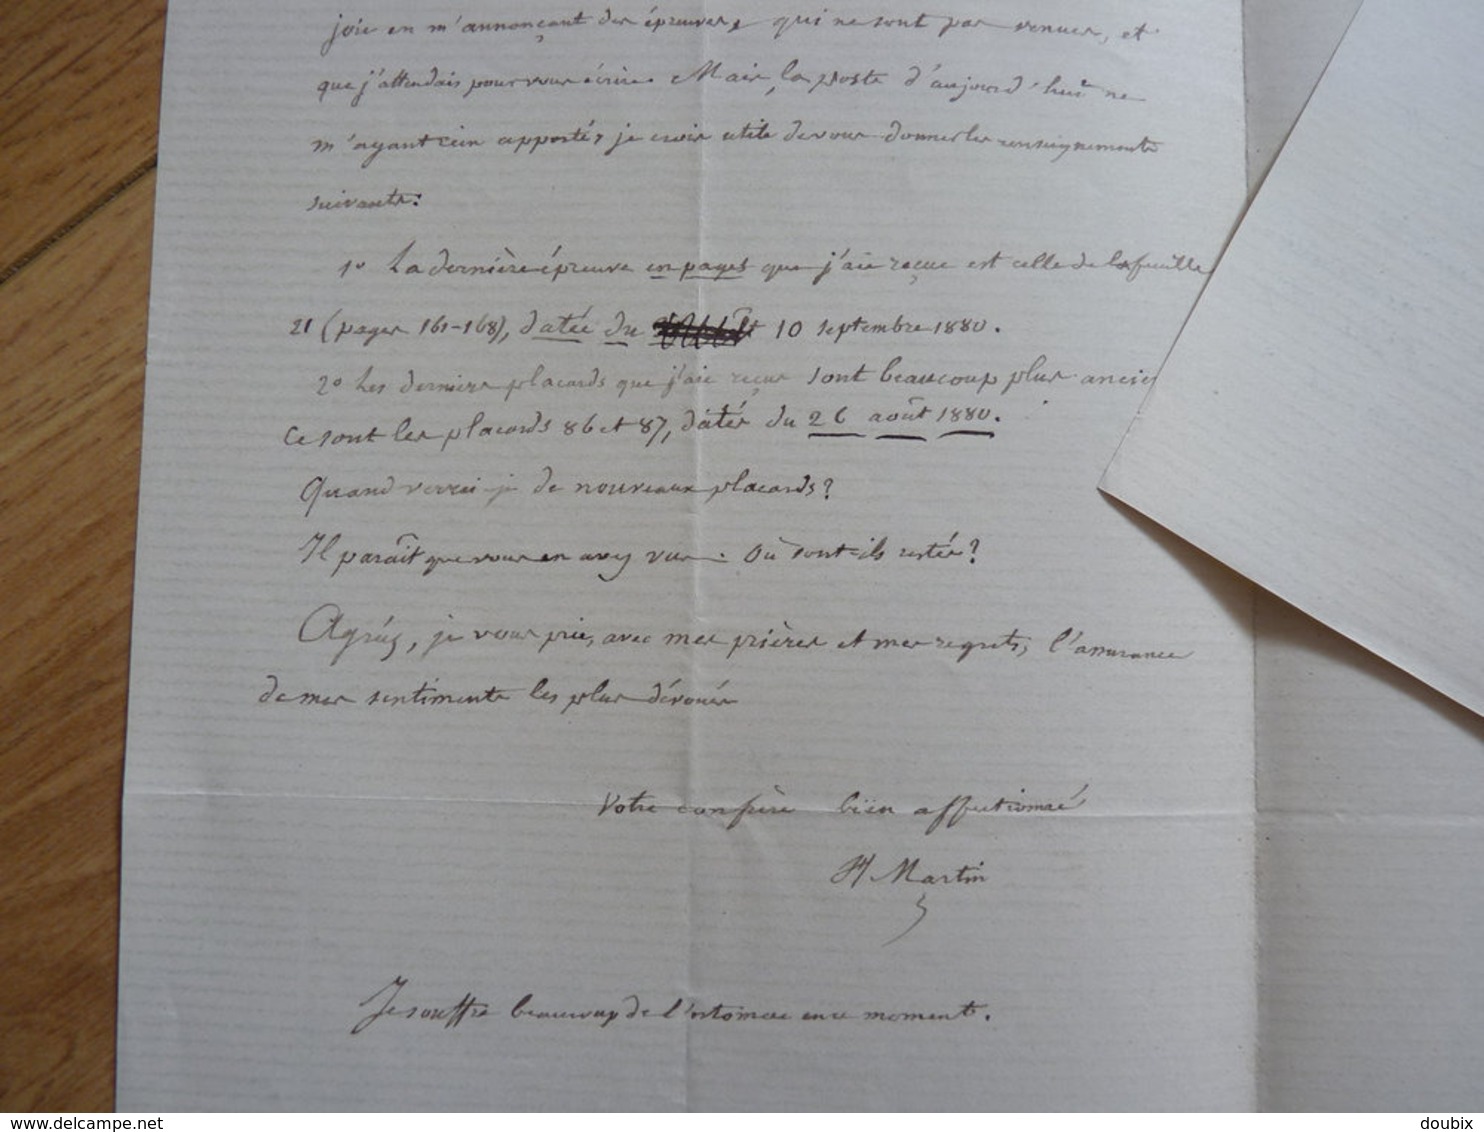 joie en m'annonçant des épreuves, qui ne sont pas venues, et
que j'attendais pour vous écrire. Mais, la poste d'aujourd'hui ne
m'ayant rien apporté, je crois utile de vous donner les renseignements
suivants:
1º La dernière épreuve en pages que j'aie reçue est celle de la feuille
21 (pages 161-168), datée du 10 septembre 1880.
2º Les derniers placards que j'aie reçus sont beaucoup plus ancie
Ce sont les placards 86 et 87, datés du 26 août 1880.
Quand verrai-je de nouveaux placards?
Il paraît que vous en avez vus. Où sont-ils restés?
Agréez, je vous prie, avec mes prières et mes regrets, l'assurance
de mes sentiments les plus dévoués
Votre confrère bien affectionné
H Martin
Je souffre beaucoup de l'estomac en ce moment.
www.delcampe.net
doubix